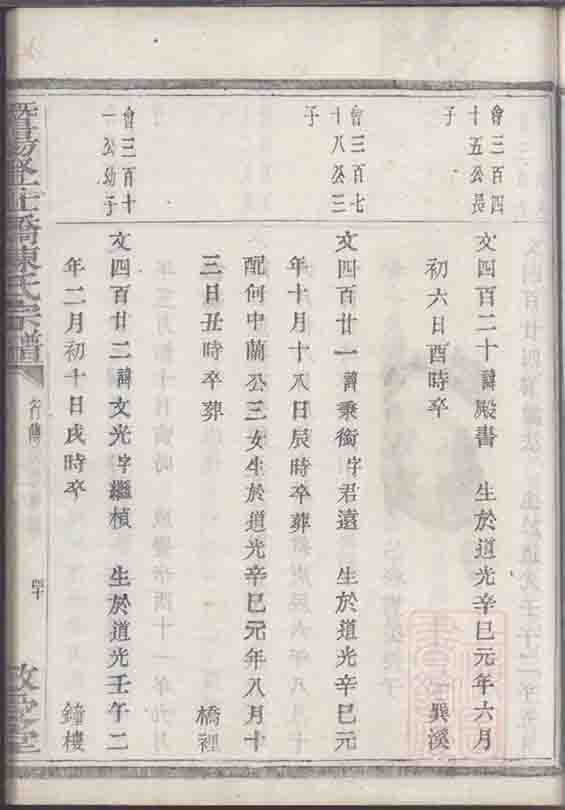 會三百四
十五公長
子
文四百二十諱殿書 生於道光辛巳元年六月
初六日酉時卒 巽溪
會三百七
十八公三
子
文四百廿一諱秉銜字君遠 生於道光辛巳元
年十月十八日辰時卒葬
配何中蘭公三女生於道光辛巳元年八月十
三日丑時卒葬 橋裡
會三百十
一公幼子
文四百廿二諱文光字繼楨 生於道光壬午二
年二月初十日戌時卒 鐘樓
陳氏宗譜
行傳